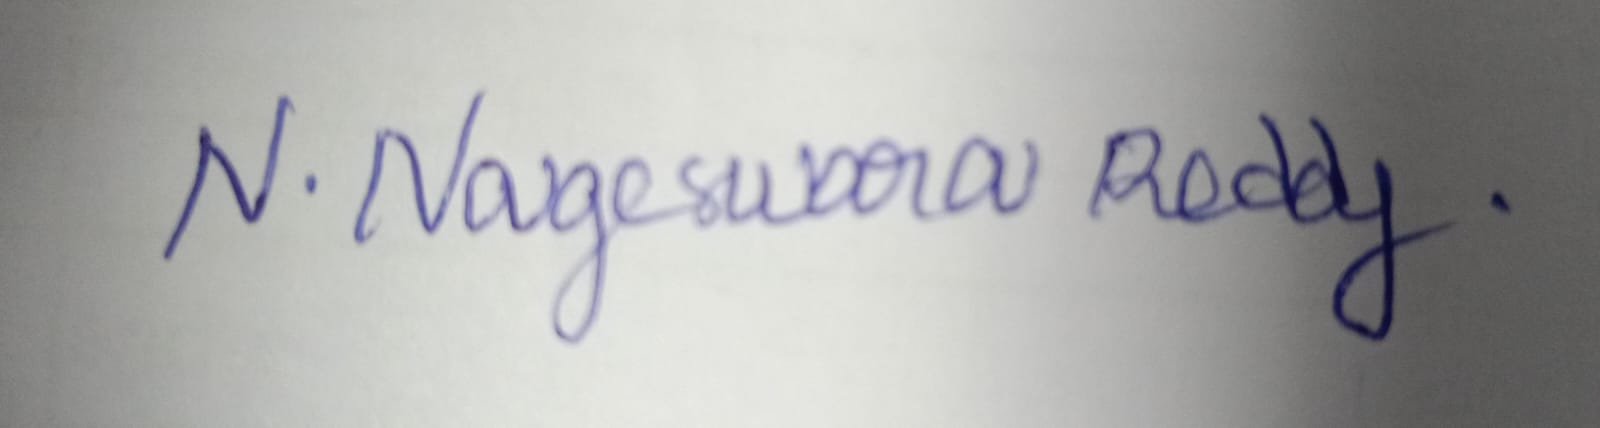 N. Nageswara Reddy.